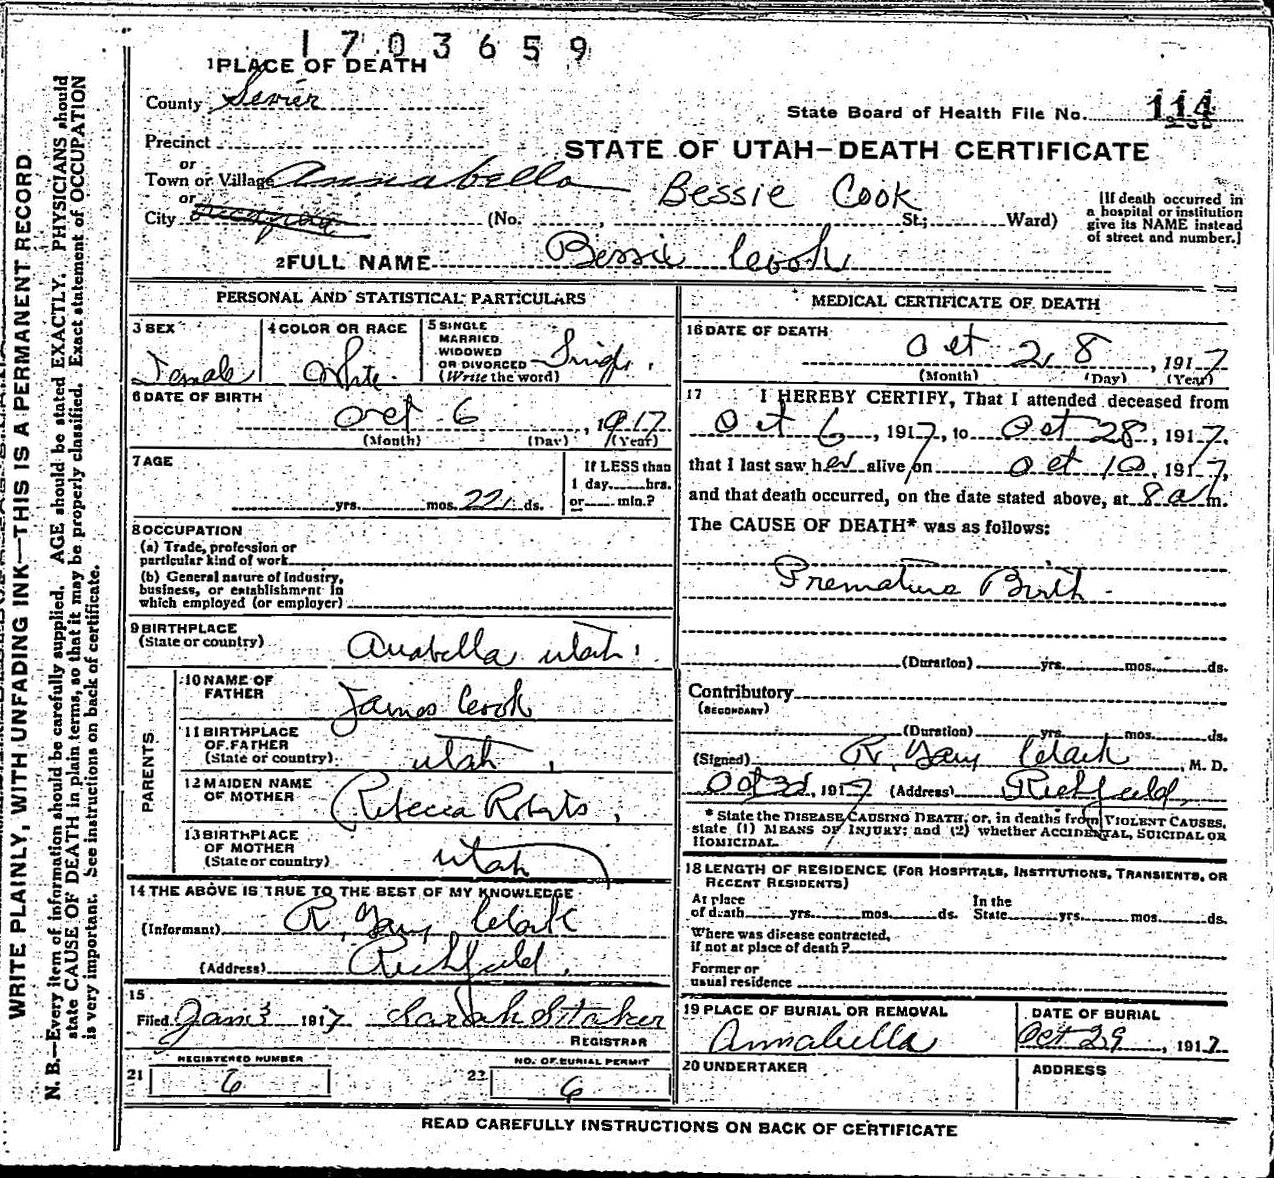 1703659
1 PLACE OF DEATH
County Sevier
State Board of Health File No. 114
Precinct
or
Town or Village Annabella
STATE OF UTAH—DEATH CERTIFICATE
or
Bessie Cook
City (No. , St; Ward)
[If death occurred in a hospital or institution give its NAME instead of street and number.]
2 FULL NAME Bessie Cook
PERSONAL AND STATISTICAL PARTICULARS
3 SEX Female
4 COLOR OR RACE White
5 SINGLE MARRIED, WIDOWED OR DIVORCED (Write the word) Single
6 DATE OF BIRTH
Oct 6, 1917
(Month) (Day) (Year)
7 AGE
yrs. mos. 22 ds.
If LESS than 1 day hrs. or min.?
8 OCCUPATION
(a) Trade, profession or
particular kind of work
(b) General nature of Industry,
business, or establishment in
which employed (or employer)
9 BIRTHPLACE
(State or country) Anabella Utah
PARENTS
10 NAME OF FATHER James Cook
11 BIRTHPLACE OF FATHER (State or country) Utah
12 MAIDEN NAME OF MOTHER Rebecca Roberts
13 BIRTHPLACE OF MOTHER (State or country) Utah
14 THE ABOVE IS TRUE TO THE BEST OF MY KNOWLEDGE
(Informant) R. Gary Clark
(Address) Richfield
15
Filed Jan 3 1917 Sarah Staker
REGISTRAR
REGISTERED NUMBER
21 6
NO. OF BURIAL PERMIT
22 6
MEDICAL CERTIFICATE OF DEATH
16 DATE OF DEATH
Oct 28, 1917
(Month) (Day) (Year)
17 I HEREBY CERTIFY, That I attended deceased from
Oct 6, 1917, to Oct 28, 1917,
that I last saw her alive on Oct 10, 1917,
and that death occurred, on the date stated above, at 8 a m.
The CAUSE OF DEATH* was as follows:
Premature Birth
(Duration) yrs. mos. ds.
Contributory
(SECONDARY)
(Duration) yrs. mos. ds.
(Signed) R. Gary Clark, M. D.
Oct 1917 (Address) Richfield
* State the DISEASE CAUSING DEATH, or, in deaths from VIOLENT CAUSES,
state (1) MEANS OF INJURY; and (2) whether ACCIDENTAL, SUICIDAL OR
HOMICIDAL.
18 LENGTH OF RESIDENCE (FOR HOSPITALS, INSTITUTIONS, TRANSIENTS, OR
RECENT RESIDENTS)
At place of death yrs. mos. ds. In the State yrs. mos. ds.
Where was disease contracted,
if not at place of death?
Former or
usual residence
19 PLACE OF BURIAL OR REMOVAL
Annabella
DATE OF BURIAL
Oct 29, 1917
20 UNDERTAKER
ADDRESS
READ CAREFULLY INSTRUCTIONS ON BACK OF CERTIFICATE
WRITE PLAINLY, WITH UNFADING INK—THIS IS A PERMANENT RECORD
N. B.—Every item of information should be carefully supplied. AGE should be stated EXACTLY. PHYSICIANS should
state CAUSE OF DEATH in plain terms, so that it may be properly classified. Exact statement of OCCUPATION
is very important. See instructions on back of certificate.